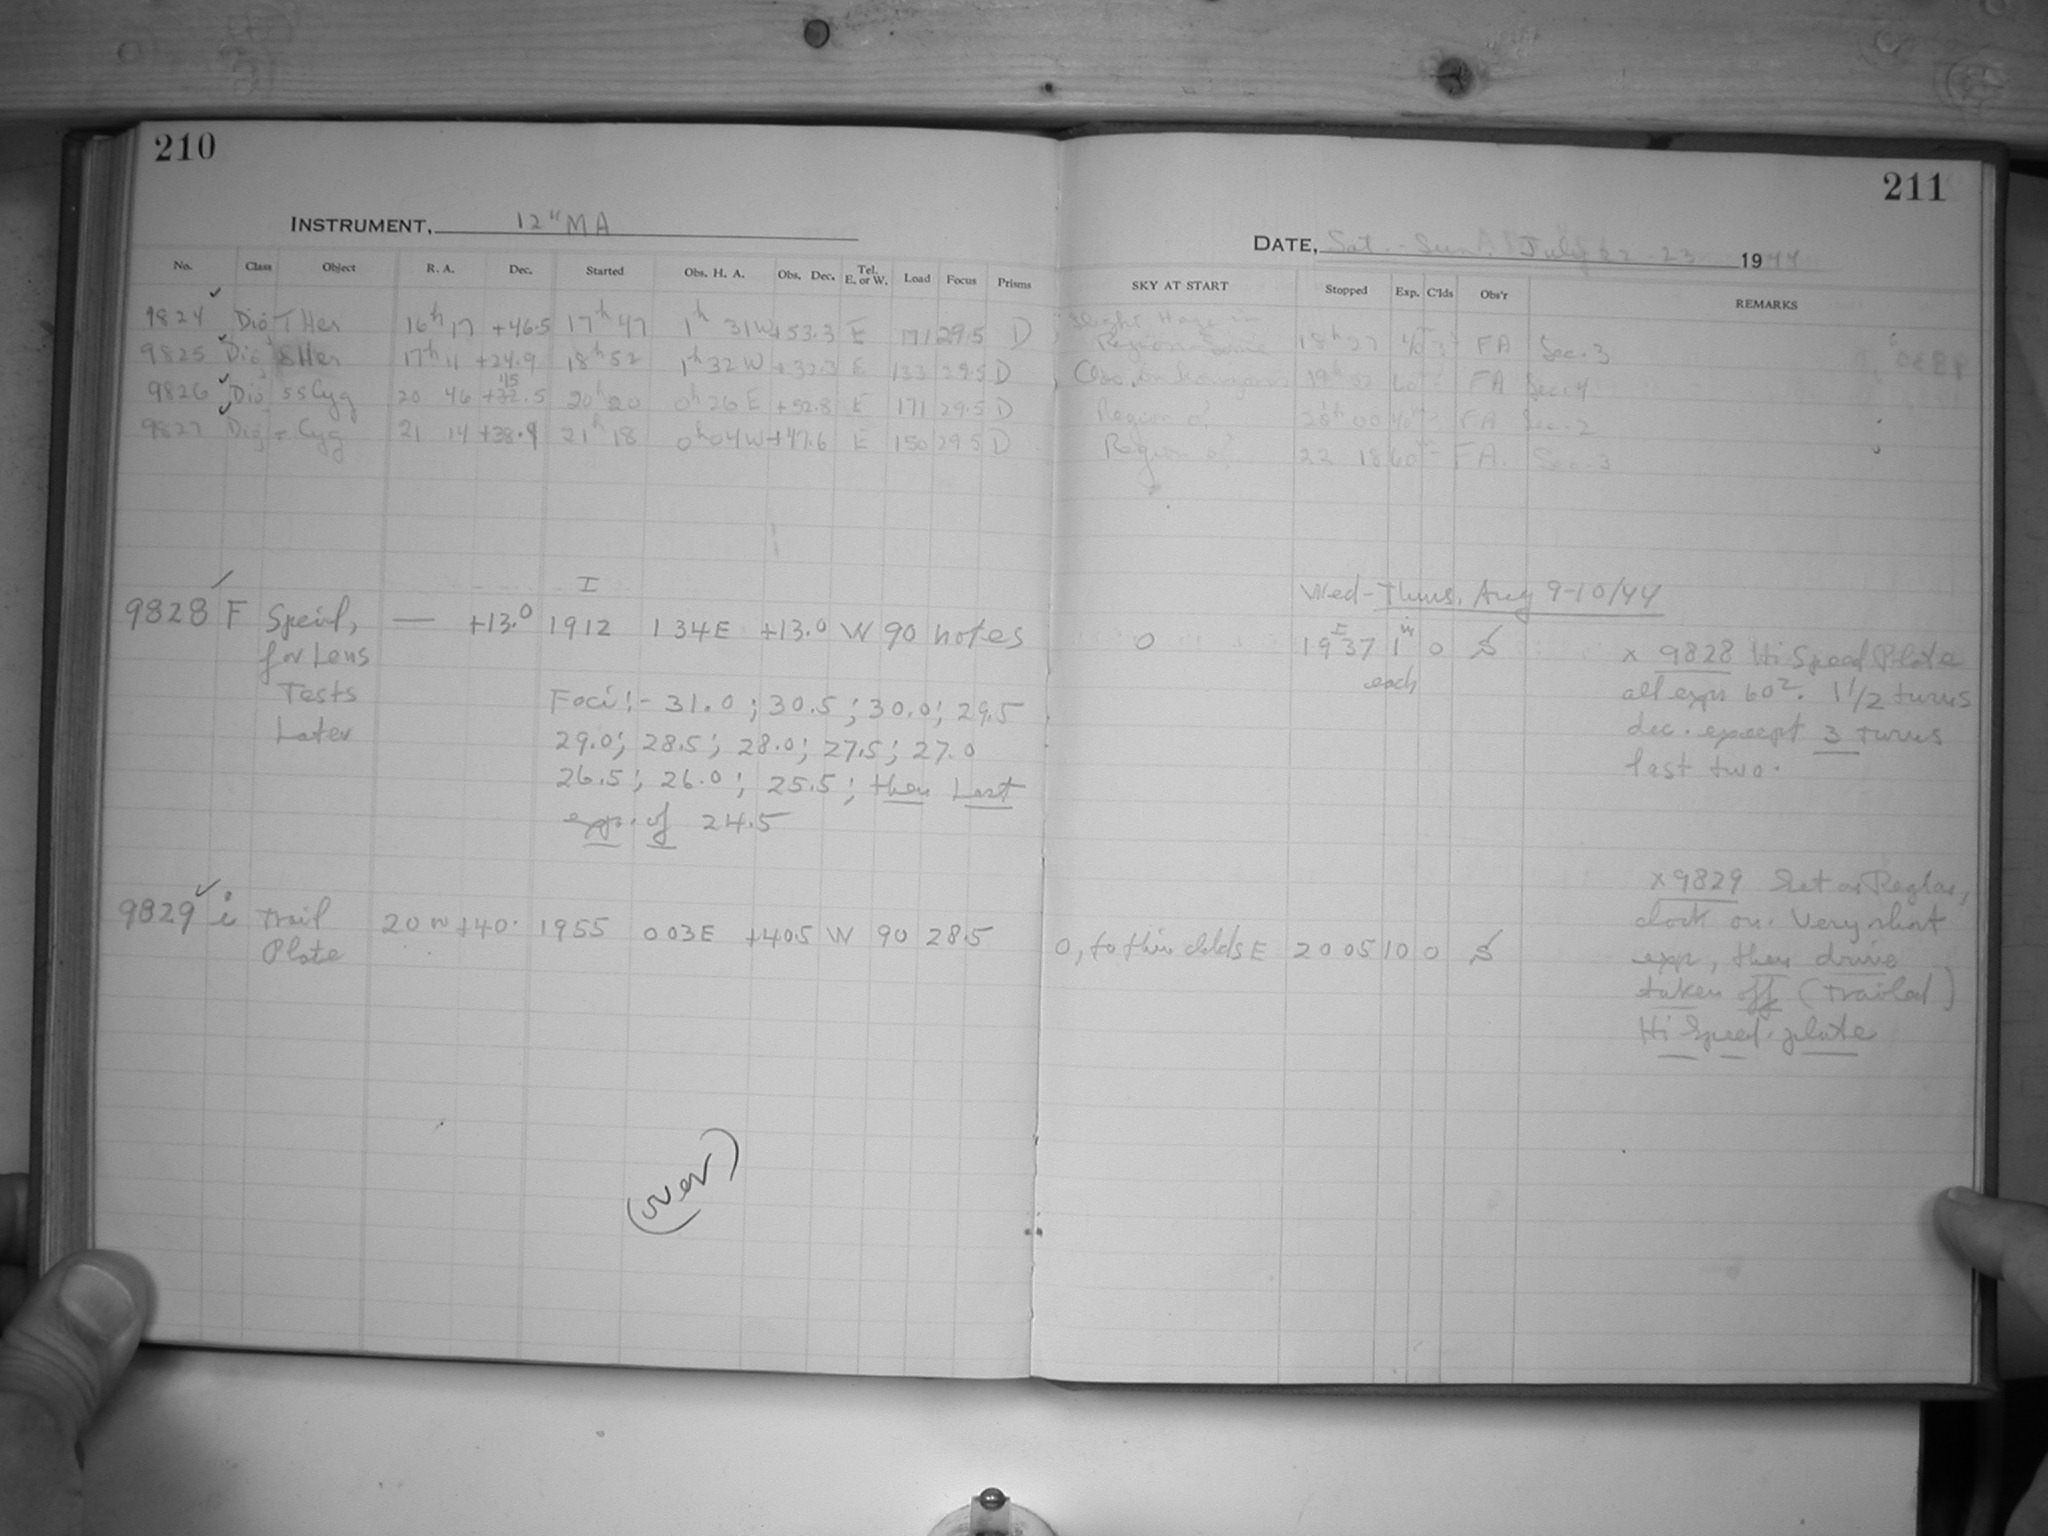 210
211
INSTRUMENT, 12" MA
DATE, Sat. - Sun. July 22-23 1944
No. Class Object R. A. Dec. Started Obs. H. A. Obs. Dec. Tel. E. or W. Load Focus Prisms
SKY AT START Stopped Exp. C'lds Obs'r REMARKS
9824 T Her 16h 17 +46.5 17h 47 1h 31W +53.3 E 171 29.5 D Slight Haze in Region 18h 27 FA Sec. 3
9825 Her 17h 11 +24.9 18h 52 1h 32W E 133 29.5 D 60 FA Sec. 4
9826 SS Cyg 20 46 20h 20 0h 26 E +52.8 E 171 29.5 D Region FA Sec. 2
9827 Cyg 21 14 +38.9 21h 18 0h 04W +47.6 E 150 29.5 D Region 22 18 60 FA. Sec. 3
Wed-Thurs. Aug 9-10/44
I
9828 F Specil, — +13.0 1912 1 34E +13.0 W 90 notes 0 1937 1m 0
for Lens
Tests
Later
each
Foci:- 31.0; 30.5; 30.0; 29.5
29.0; 28.5; 28.0; 27.5; 27.0
26.5; 26.0; 25.5; then Last
exp. of 24.5
x 9828 Hi Speed Plate
all exps 60s. 1 1/2 turns
dec. except 3 turns
last two.
9829 i Trail 20 +40. 1955 0 03E +40.5 W 90 28.5 0, to thin cldds E 20 05 10 0
Plate
x 9829 Set as Reglar,
clock on. Very short
exp, then drive
taken off (Trailed)
Hi Speed plate
(over)